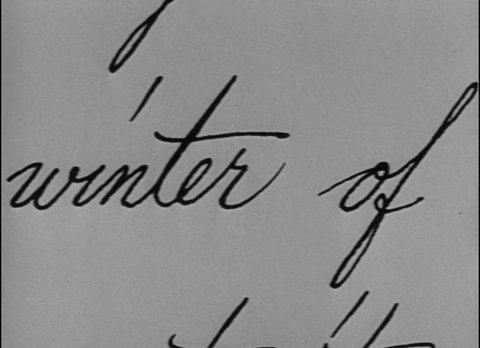 winter of